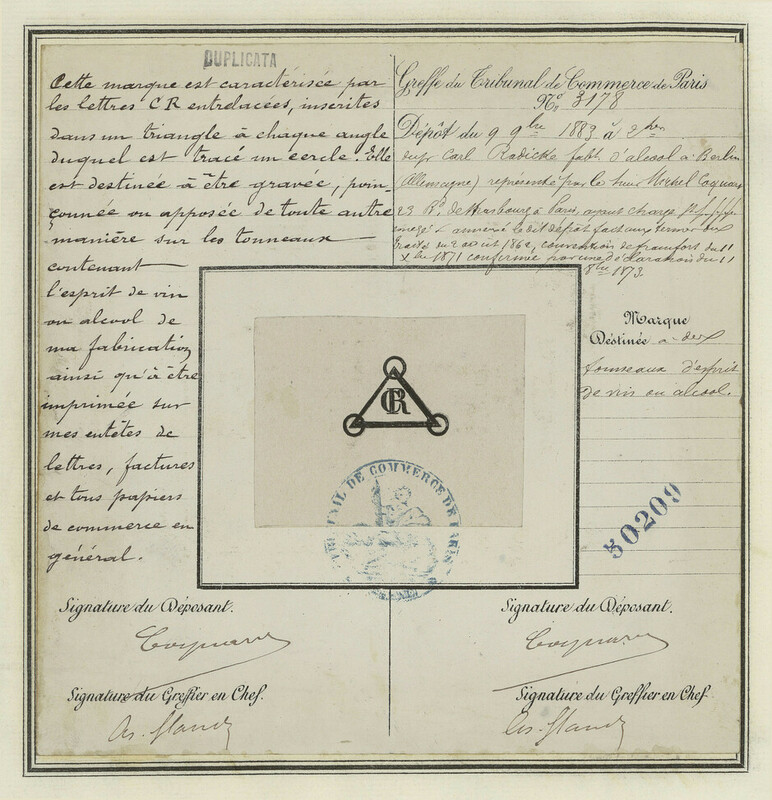 DUPLICATA
Cette marque est caractérisée par
les lettres CR entrelacées, inscrites
dans un triangle à chaque angle
duquel est tracé un cercle. Elle
est destinée à être gravée, poin-
çonnée ou apposée de toute autre
manière sur les tonneaux
contenant
l'esprit de vin
ou alcool de
ma fabrication
ainsi qu'à être
imprimée sur
mes entêtes de
lettres, factures
et tous papiers
de commerce en
général.
Greffe du Tribunal de Commerce de Paris
No. 3178
Dépôt du 9 9bre 1883 à 2 hres
Carl Radicke fabt. d'alcool à Berlin
(Allemagne) représenté par le sieur Michel
23 Bd. de Strasbourg à Paris, ayant charge
le dit dépôt fait aux termes des
traités du 2 août 1862, convention de francfort du 11
Xbre 1871 confirmée par une déclaration du 11
8bre 1873.
Marque
Déstinée à des
tonneaux d'esprit
de vin ou alcool.
CR
TRIBUNAL DE COMMERCE DE PARIS
50209
Signature du Déposant.
Signature du Greffier en Chef.
Signature du Déposant.
Signature du Greffier en Chef.